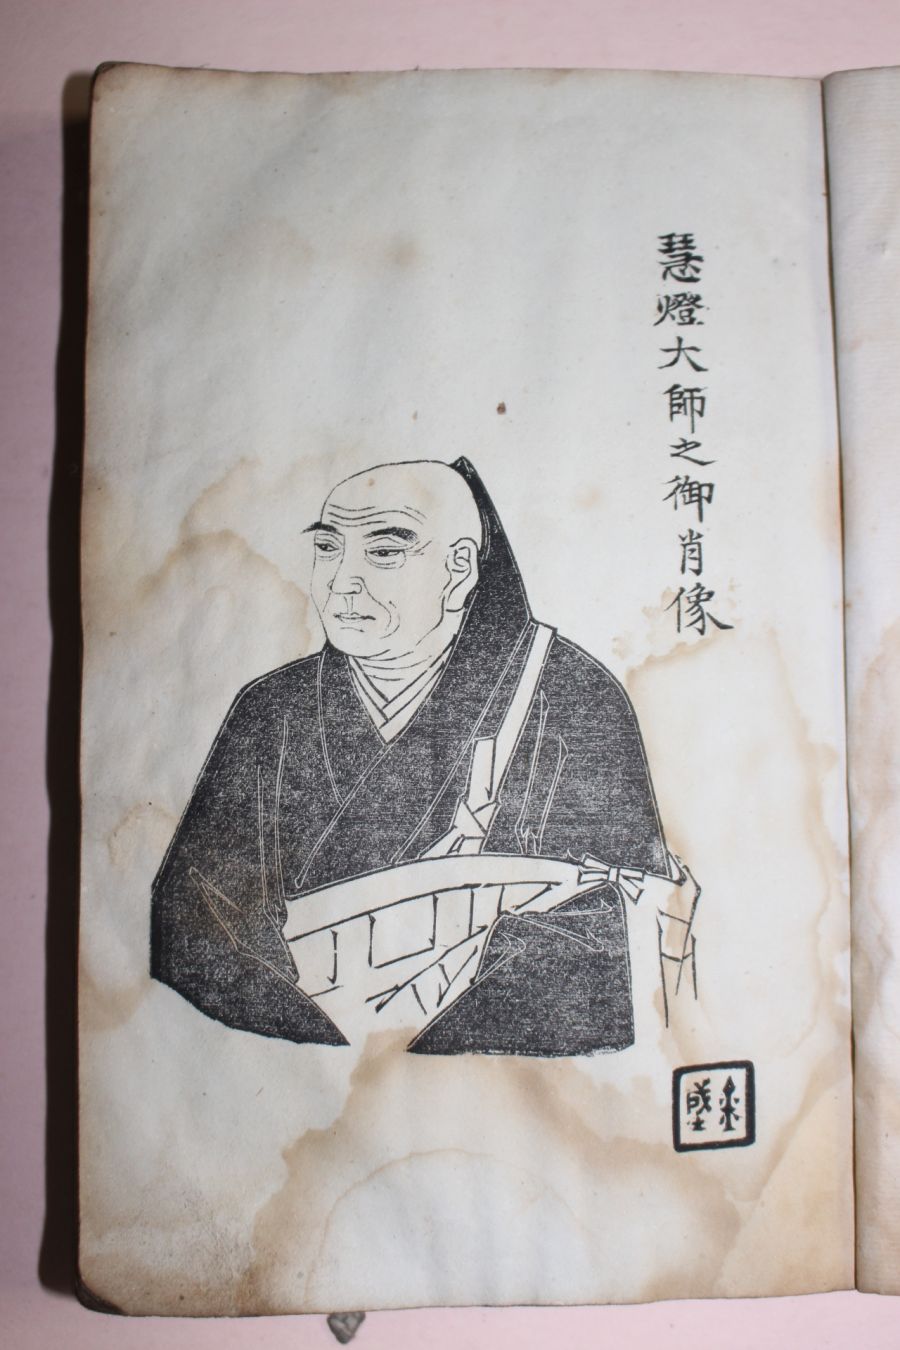 慧燈大師之御肖像